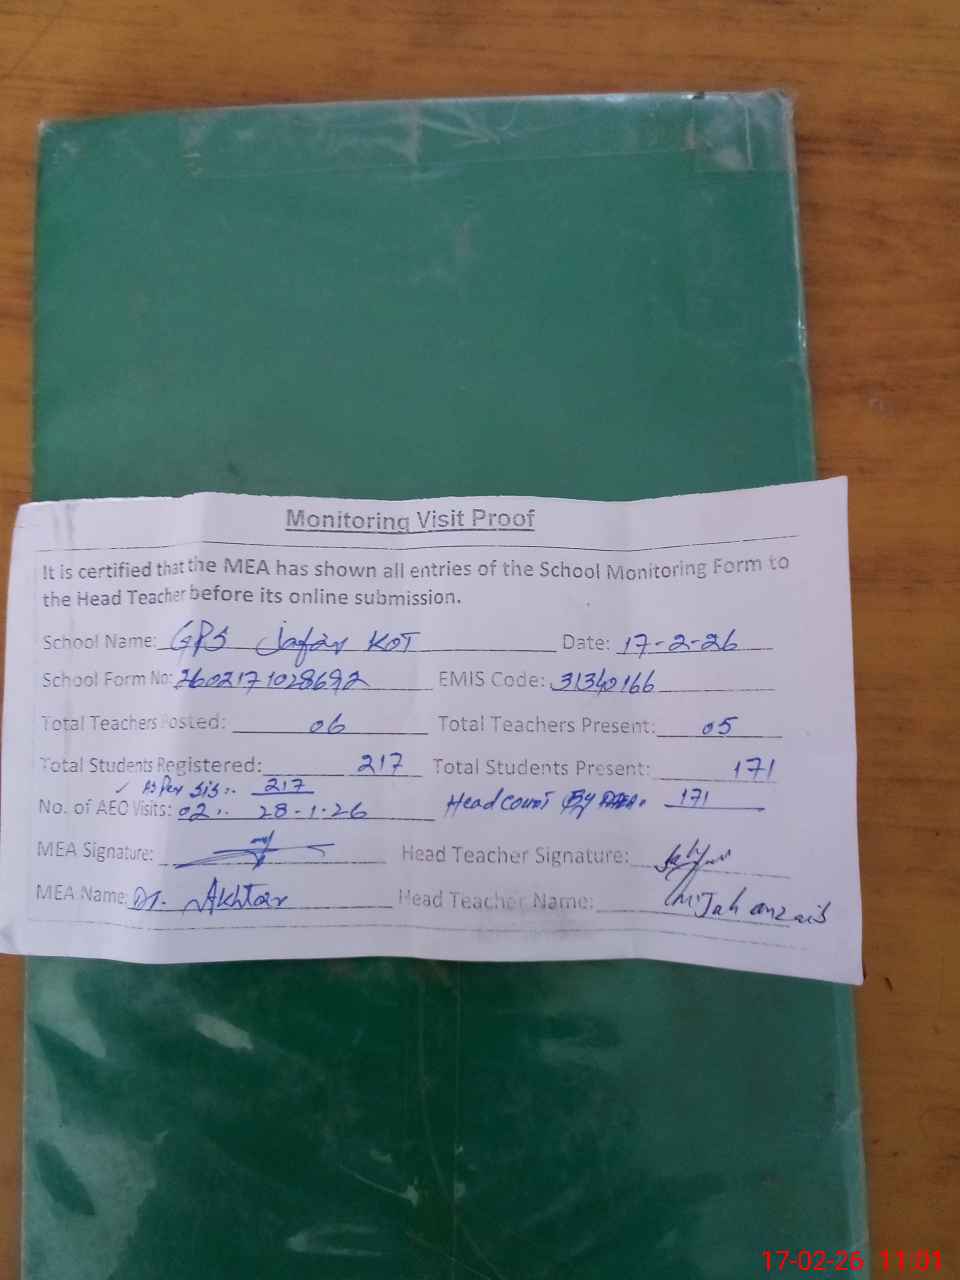 Monitoring Visit Proof
It is certified that the MEA has shown all entries of the School Monitoring Form to
the Head Teacher before its online submission.
School Name: GPS Jafar KOT Date: 17-2-26
School Form No: 2602171028692 EMIS Code: 31340166
Total Teachers Posted: 06 Total Teachers Present: 05
Total Students Registered: 217 Total Students Present: 171
✓ As Per Sis:. 217
No. of AEO Visits: 02:. 28-1-26 Head count By 171
MEA Signature: Head Teacher Signature:
MEA Name: Akhtar Head Teacher Name: M. Jahanzaib
17-02-26 11:01